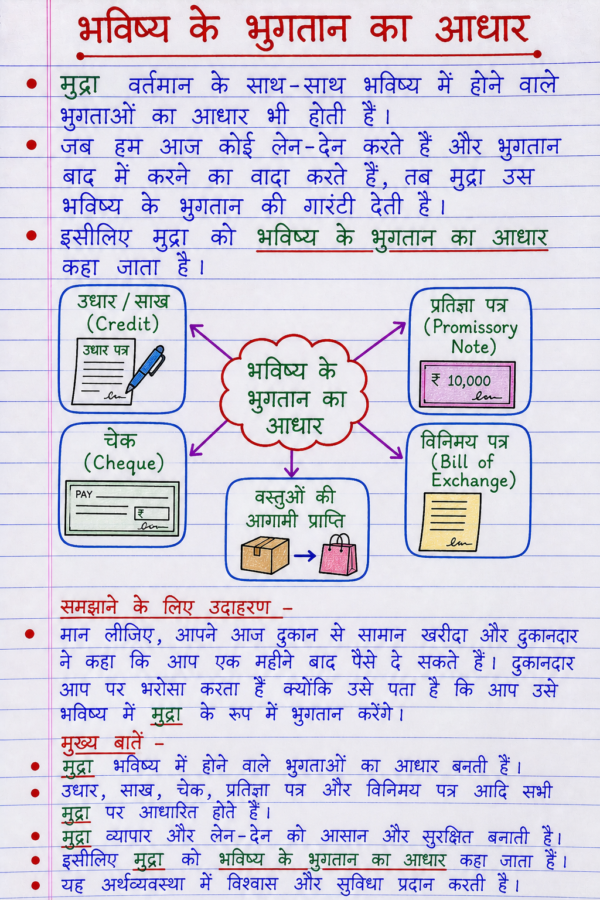 भविष्य के भुगतान का आधार
मुद्रा वर्तमान के साथ-साथ भविष्य में होने वाले
भुगताओं का आधार भी होती हैं।
जब हम आज कोई लेन-देन करते हैं और भुगतान
बाद में करने का वादा करते हैं, तब मुद्रा उस
भविष्य के भुगतान की गारंटी देती है।
इसीलिए मुद्रा को भविष्य के भुगतान का आधार
कहा जाता है।
उधार / साख
(Credit)
उधार पत्र
प्रतिज्ञा पत्र
(Promissory
Note)
₹ 10,000
भविष्य के
भुगतान का
आधार
चेक
(Cheque)
PAY
₹
विनिमय पत्र
(Bill of
Exchange)
वस्तुओं की
आगामी प्राप्ति
समझाने के लिए उदाहरण -
मान लीजिए, आपने आज दुकान से सामान खरीदा और दुकानदार
ने कहा कि आप एक महीने बाद पैसे दे सकते हैं। दुकानदार
आप पर भरोसा करता हैं क्योंकि उसे पता है कि आप उसे
भविष्य में मुद्रा के रूप में भुगतान करेंगे।
मुख्य बातें -
मुद्रा भविष्य में होने वाले भुगताओं का आधार बनती हैं।
उधार, साख, चेक, प्रतिज्ञा पत्र और विनिमय पत्र आदि सभी
मुद्रा पर आधारित होते हैं।
मुद्रा व्यापार और लेन-देन को आसान और सुरक्षित बनाती है।
इसीलिए मुद्रा को भविष्य के भुगतान का आधार कहा जाता हैं।
यह अर्थव्यवस्था में विश्वास और सुविधा प्रदान करती है।